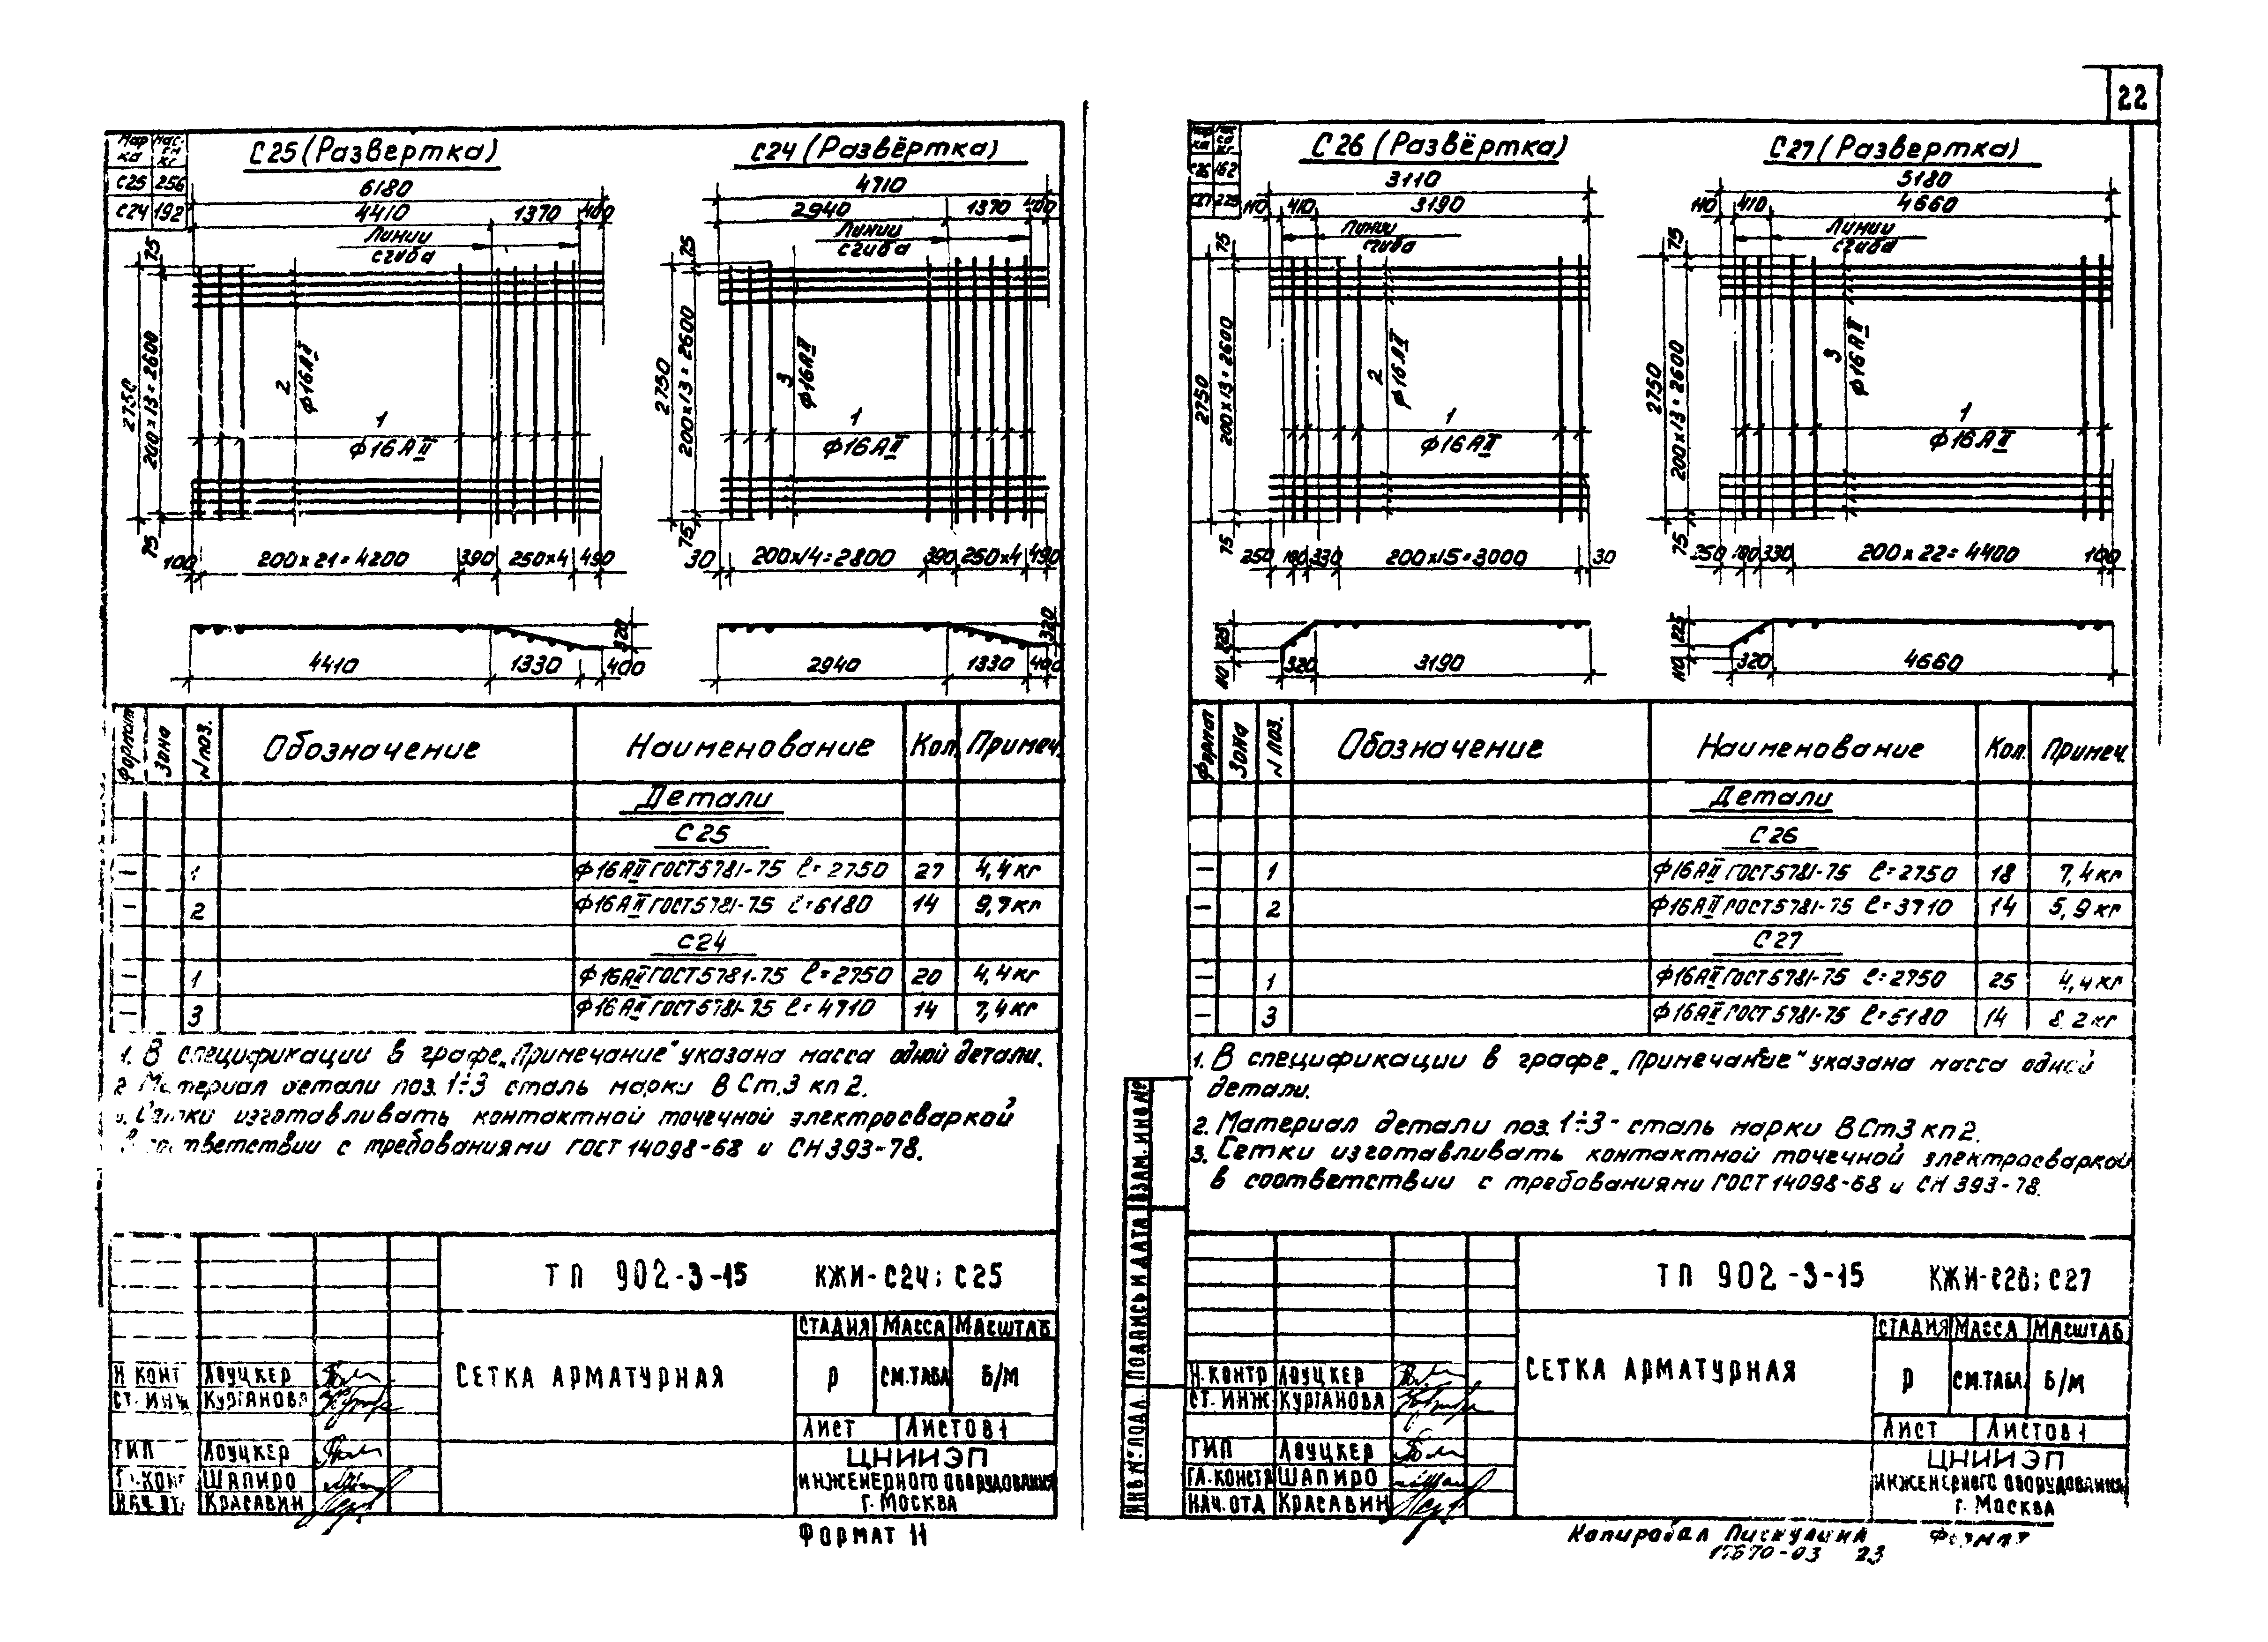 22
Мар ка Мас- са кг
С25 256
С24 192
С25 (Развертка)
6180
4410 1370 400
Линии сгиба
75
2750
200х13=2600
75
2
ф16АII
1
ф16АII
100 200х21=4200 390 250х4 490
320
4410 1330 400
С24 (Развёртка)
4710
2940 1370 400
Линии сгиба
75
2750
200х13=2600
75
3
ф16АII
1
ф16АII
30 200х14=2800 390 250х4 490
320
2940 1330 400
Формат Зона N поз. Обозначение Наименование Кол. Примеч.
Детали
С25
— 1 ф16АII ГОСТ5781-75 ℓ=2750 27 4,4кг
— 2 ф16АII ГОСТ5781-75 ℓ=6180 14 9,7кг
С24
— 1 ф16АII ГОСТ5781-75 ℓ=2750 20 4,4кг
— 3 ф16АII ГОСТ5781-75 ℓ=4710 14 7,4кг
1. В спецификации в графе „Примечание" указана масса одной детали.
2 Материал детали поз. 1÷3 сталь марки ВСт.3 кп2.
3. Сетки изготавливать контактной точечной электросваркой
в соответствии с требованиями ГОСТ 14098-68 и СН393-78.
ТП 902-3-15 КЖИ-С24; С25
СТАДИЯ МАССА МАСШТАБ
СЕТКА АРМАТУРНАЯ
Р СМ.ТАБЛ Б/М
ЛИСТ ЛИСТОВ 1
Н КОНТ ЛОУЦКЕР
СТ. ИНЖ КУРГАНОВА
ГИП ЛОУЦКЕР
ГЛ.КОНС ШАПИРО
НАЧ. ОТ. КРАСАВИН
ЦНИИЭП
ИНЖЕНЕРНОГО ОБОРУДОВАНИЯ
Г. МОСКВА
ФОРМАТ 11
Мар ка Мас са кг
С26 162
С27 225
С26 (Развёртка)
3110
110 410 3190
Линии сгиба
75
2750
200х13=2600
75
2
ф16АII
1
ф16АII
250 180 330 200х15=3000 30
225
110
320 3190
С27 (Развертка)
5180
110 410 4660
Линии сгиба
75
2750
200х13=2600
75
3
ф16АII
1
ф16АII
250 180 330 200х22=4400 100
225
110
320 4660
Формат Зона N поз. Обозначение Наименование Кол. Примеч.
Детали
С26
— 1 ф16АII ГОСТ5781-75 ℓ=2750 18 7,4кг
— 2 ф16АII ГОСТ5781-75 ℓ=3710 14 5,9кг
С27
— 1 ф16АII ГОСТ5781-75 ℓ=2750 25 4,4кг
— 3 ф16АII ГОСТ5781-75 ℓ=5180 14 8 2кг
1. В спецификации в графе „Примечание" указана масса одной
детали.
2. Материал детали поз. 1÷3 - сталь марки ВСт3 кп2.
3. Сетки изготавливать контактной точечной электросваркой
в соответствии с требованиями ГОСТ 14098-68 и СН 393-78.
ИНВ № ПОДЛ. ПОДПИСЬ И ДАТА ВЗАМ. ИНВ №
ТП 902-3-15 КЖИ-С26; С27
СТАДИЯ МАССА МАСШТАБ
СЕТКА АРМАТУРНАЯ
Р СМ.ТАБЛ. Б/М
ЛИСТ ЛИСТОВ 1
Н.КОНТР ЛОУЦКЕР
СТ. ИНЖ КУРГАНОВА
ГИП ЛОУЦКЕР
ГЛ.КОНСТР ШАПИРО
НАЧ.ОТД КРАСАВИН
ЦНИИЭП
ИНЖЕНЕРНОГО ОБОРУДОВАНИЯ
Г. МОСКВА
Копировал Пискулина Формат
17570-03 23